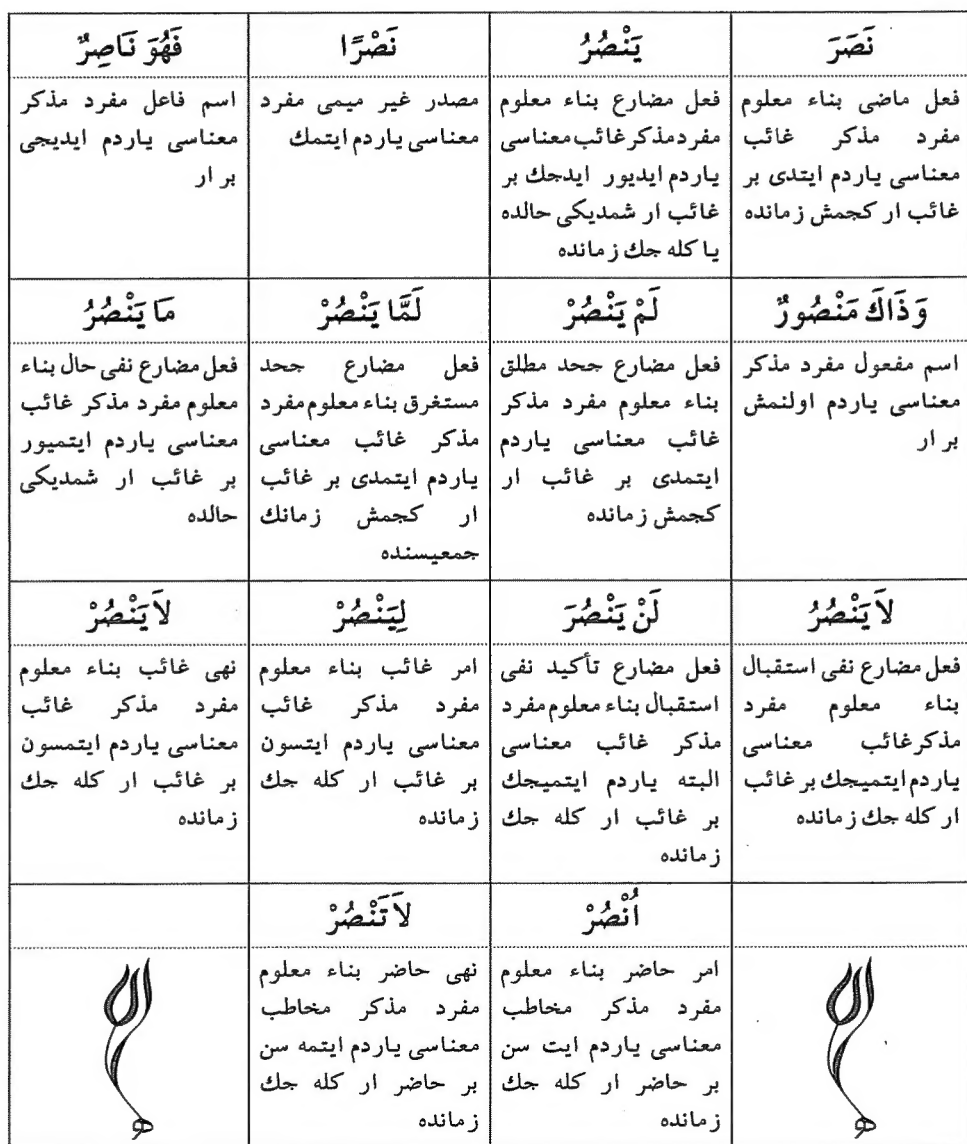 نَصَرَ
فعل ماضى بناء معلوم
مفرد مذكر غائب
معناسى ياردم ايتدى بر
غائب ار كجمش زمانده
يَنْصُرُ
فعل مضارع بناء معلوم
مفرد مذكر غائب معناسى
ياردم ايديور ايدجك بر
غائب ار شمديكى حالده
يا كله جك زمانده
نَصْرًا
مصدر غير ميمى مفرد
معناسى ياردم ايتمك
فَهُوَ نَاصِرٌ
اسم فاعل مفرد مذكر
معناسى ياردم ايديجى
بر ار
وَذَاكَ مَنْصُورٌ
اسم مفعول مفرد مذكر
معناسى ياردم اولنمش
بر ار
لَمْ يَنْصُرْ
فعل مضارع جحد مطلق
بناء معلوم مفرد مذكر
غائب معناسى ياردم
ايتمدى بر غائب ار
كجمش زمانده
لَمَّا يَنْصُرْ
فعل مضارع جحد
مستغرق بناء معلوم مفرد
مذكر غائب معناسى
ياردم ايتمدى بر غائب
ار كجمش زمانك
جمعيسنده
مَا يَنْصُرُ
فعل مضارع نفى حال بناء
معلوم مفرد مذكر غائب
معناسى ياردم ايتميور
بر غائب ار شمديكى
حالده
لاَ يَنْصُرُ
فعل مضارع نفى استقبال
بناء معلوم مفرد
مذكر غائب معناسى
ياردم ايتميجك بر غائب
ار كله جك زمانده
لَنْ يَنْصُرَ
فعل مضارع تأكيد نفى
استقبال بناء معلوم مفرد
مذكر غائب معناسى
البته ياردم ايتميجك
بر غائب ار كله جك
زمانده
لِيَنْصُرْ
امر غائب بناء معلوم
مفرد مذكر غائب
معناسى ياردم ايتسون
بر غائب ار كله جك
زمانده
لاَ يَنْصُرْ
نهى غائب بناء معلوم
مفرد مذكر غائب
معناسى ياردم ايتمسون
بر غائب ار كله جك
زمانده
اُنْصُرْ
امر حاضر بناء معلوم
مفرد مذكر مخاطب
معناسى ياردم ايت سن
بر حاضر ار كله جك
زمانده
لاَ تَنْصُرْ
نهى حاضر بناء معلوم
مفرد مذكر مخاطب
معناسى ياردم ايتمه سن
بر حاضر ار كله جك
زمانده